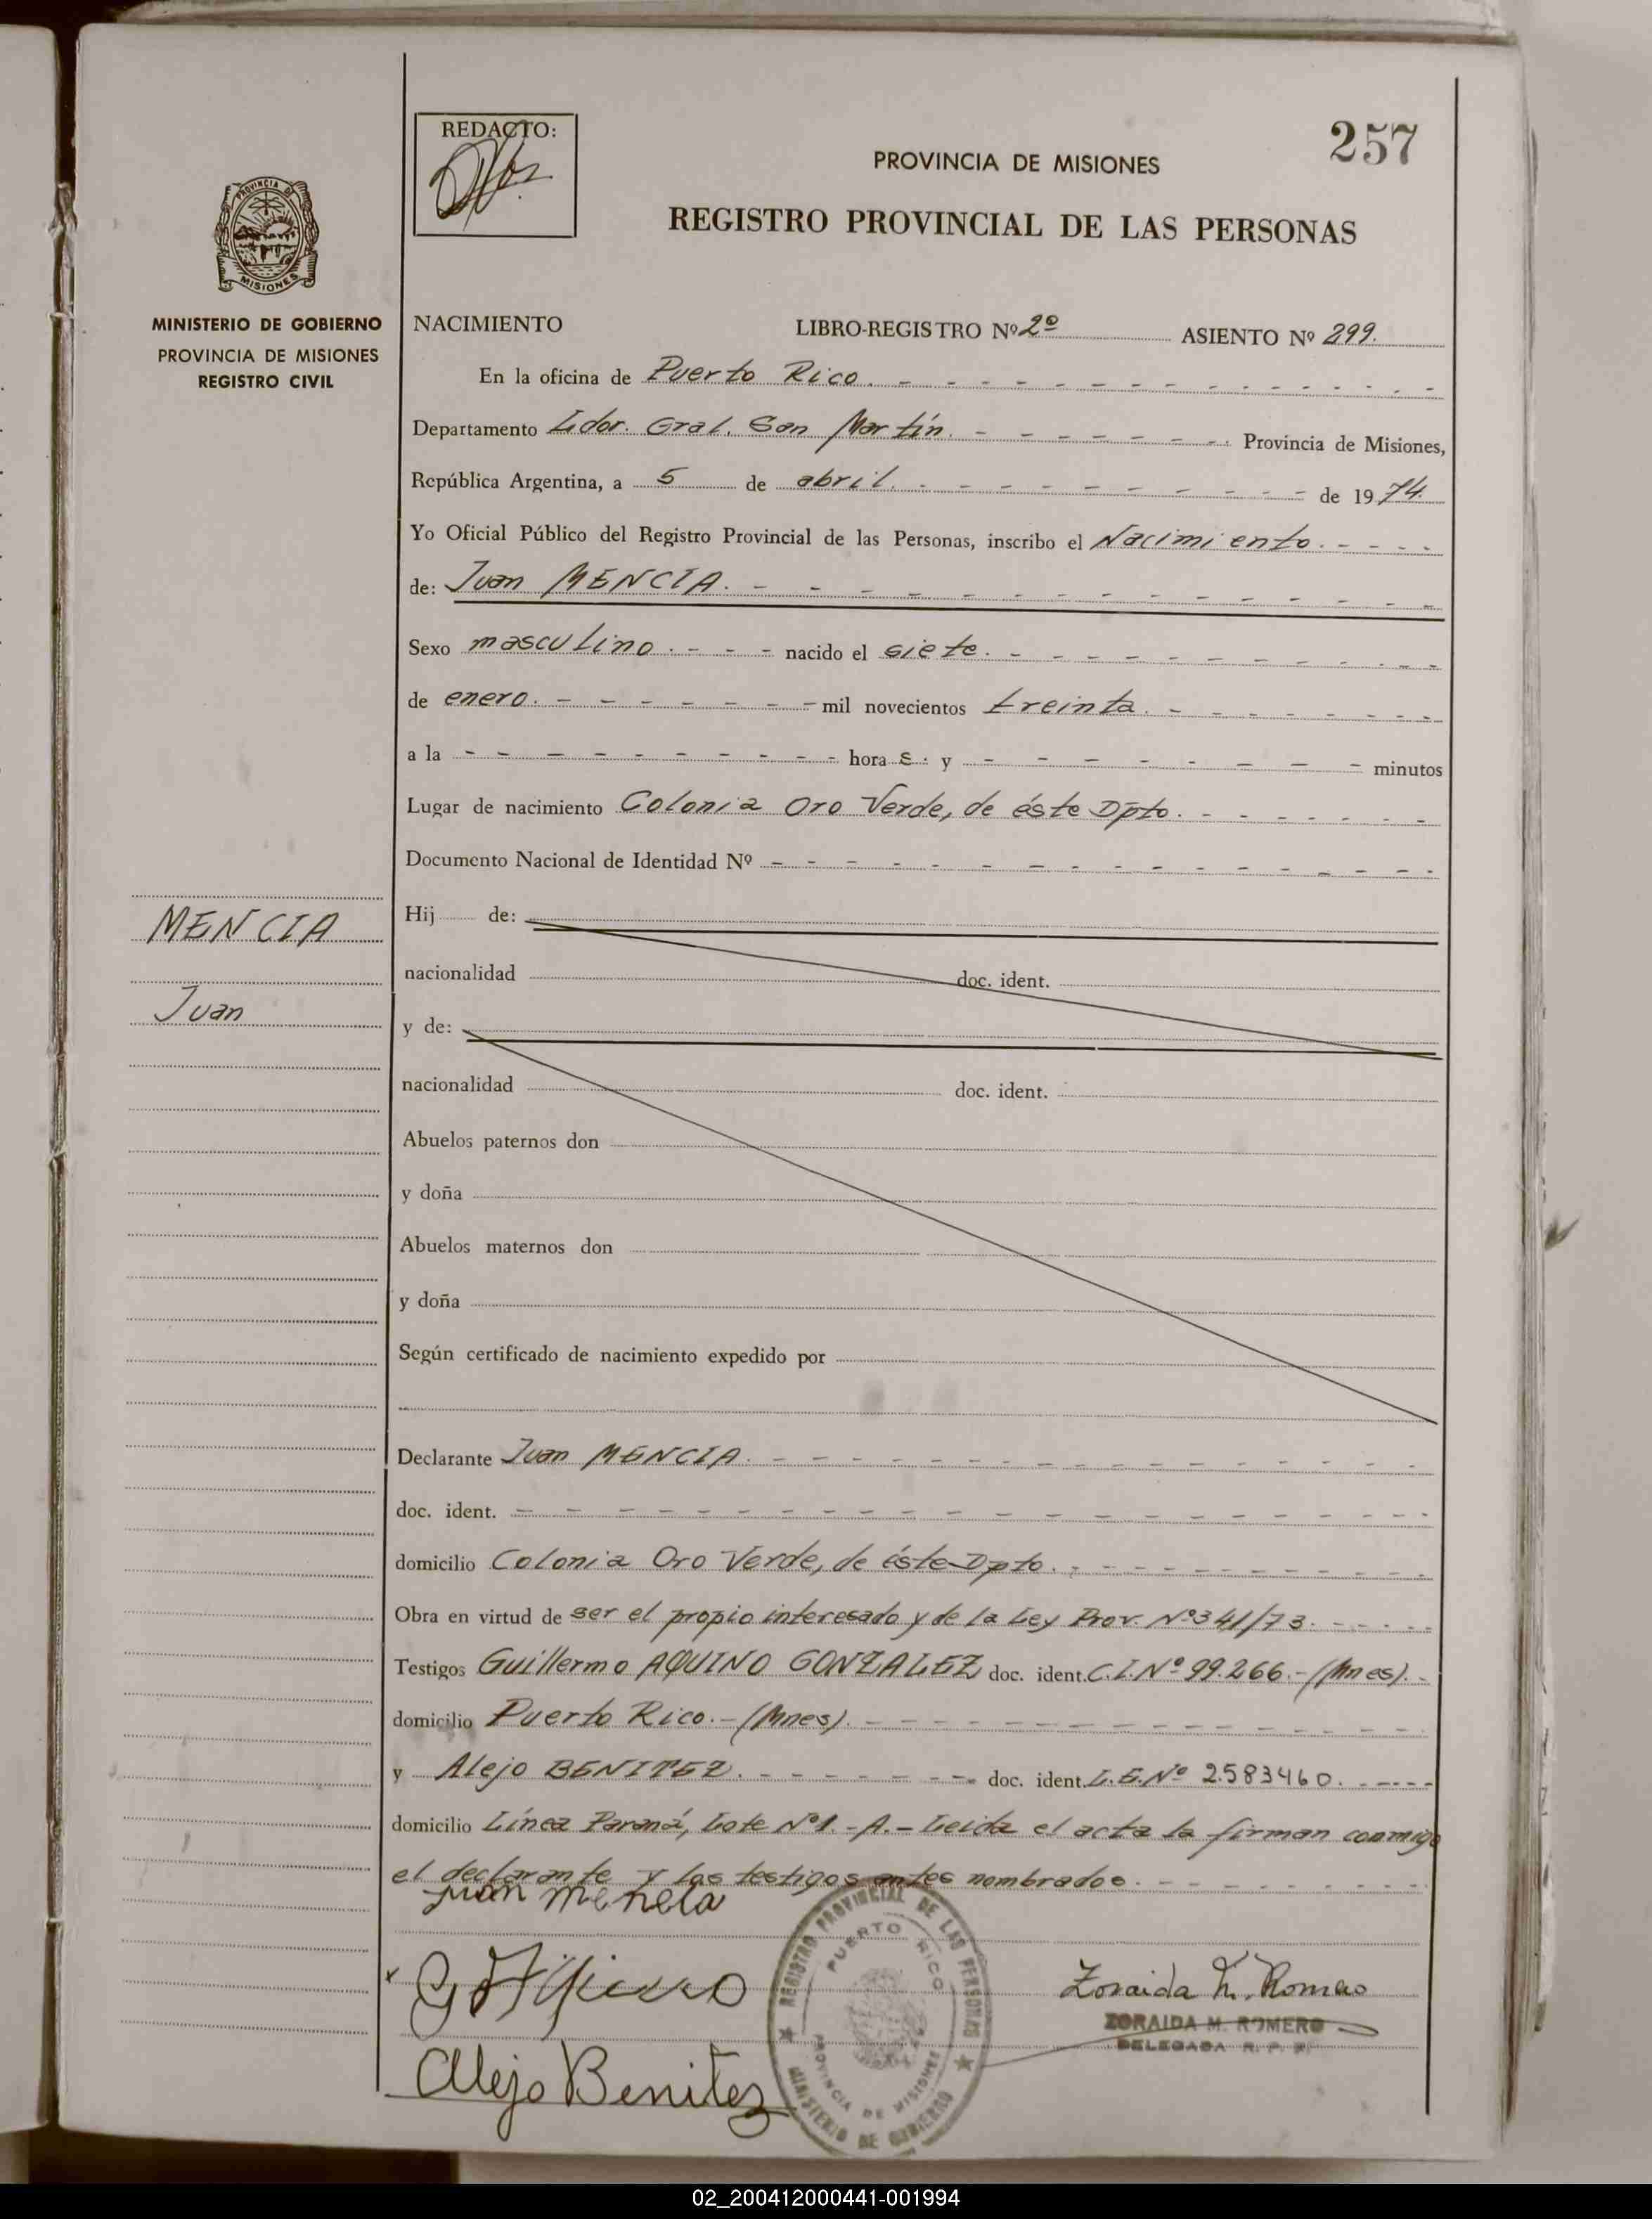 257
REDACTO:
PROVINCIA DE MISIONES
REGISTRO PROVINCIAL DE LAS PERSONAS
PROVINCIA DE
MISIONES
MINISTERIO DE GOBIERNO
PROVINCIA DE MISIONES
REGISTRO CIVIL
MENCIA
Juan
NACIMIENTO LIBRO-REGISTRO Nº 2º ASIENTO Nº 299.
En la oficina de Puerto Rico. - - - - - - - - - - - - - - -
Departamento Ldor. Gral. San Martín. - - - - - - - - Provincia de Misiones,
República Argentina, a 5 de abril. - - - - - - - - - - de 1974.
Yo Oficial Público del Registro Provincial de las Personas, inscribo el Nacimiento. - - - -
de: Juan MENCIA. - - - - - - - - - - - - - - -
Sexo masculino. - - - nacido el siete. - - - - - - - - - - - -
de enero. - - - - - - - mil novecientos treinta. - - - - - - - -
a la - - - - - - - - - - hora s. y - - - - - - - - minutos
Lugar de nacimiento Colonia Oro Verde, de éste Dpto. - - - - - - -
Documento Nacional de Identidad Nº - - - - - - - - - - - - - - - -
Hij de:
nacionalidad doc. ident.
y de:
nacionalidad doc. ident.
Abuelos paternos don
y doña
Abuelos maternos don
y doña
Según certificado de nacimiento expedido por
Declarante Juan MENCIA. - - - - - - - - - - - - - - - -
doc. ident. - - - - - - - - - - - - - - - - - - - -
domicilio Colonia Oro Verde, de éste Dpto. - - - - - - - - - -
Obra en virtud de ser el propio interesado y de la Ley Prov. Nº 341/73. - - - - -
Testigos Guillermo AQUINO GONZALEZ doc. ident. C.I. Nº 99.266.- (Mnes). -
domicilio Puerto Rico.- (Mnes). - - - - - - - - - - - - - -
y Alejo BENITEZ. - - - - - - - - doc. ident. L.E. Nº 2.583460. - - - - -
domicilio Línea Paraná, Lote Nº 1.-A.- Leida el acta la firman conmigo
el declarante y los testigos antes nombrados. - - - - - - - -
juan mencia
Alejo Benitez
REGISTRO PROVINCIAL DE LAS PERSONAS
PUERTO RICO
PROVINCIA DE MISIONES
MINISTERIO DE GOBIERNO
Zoraida M. Romero
ZORAIDA M. ROMERO
DELEGADA R. P. P.
02_200412000441-001994